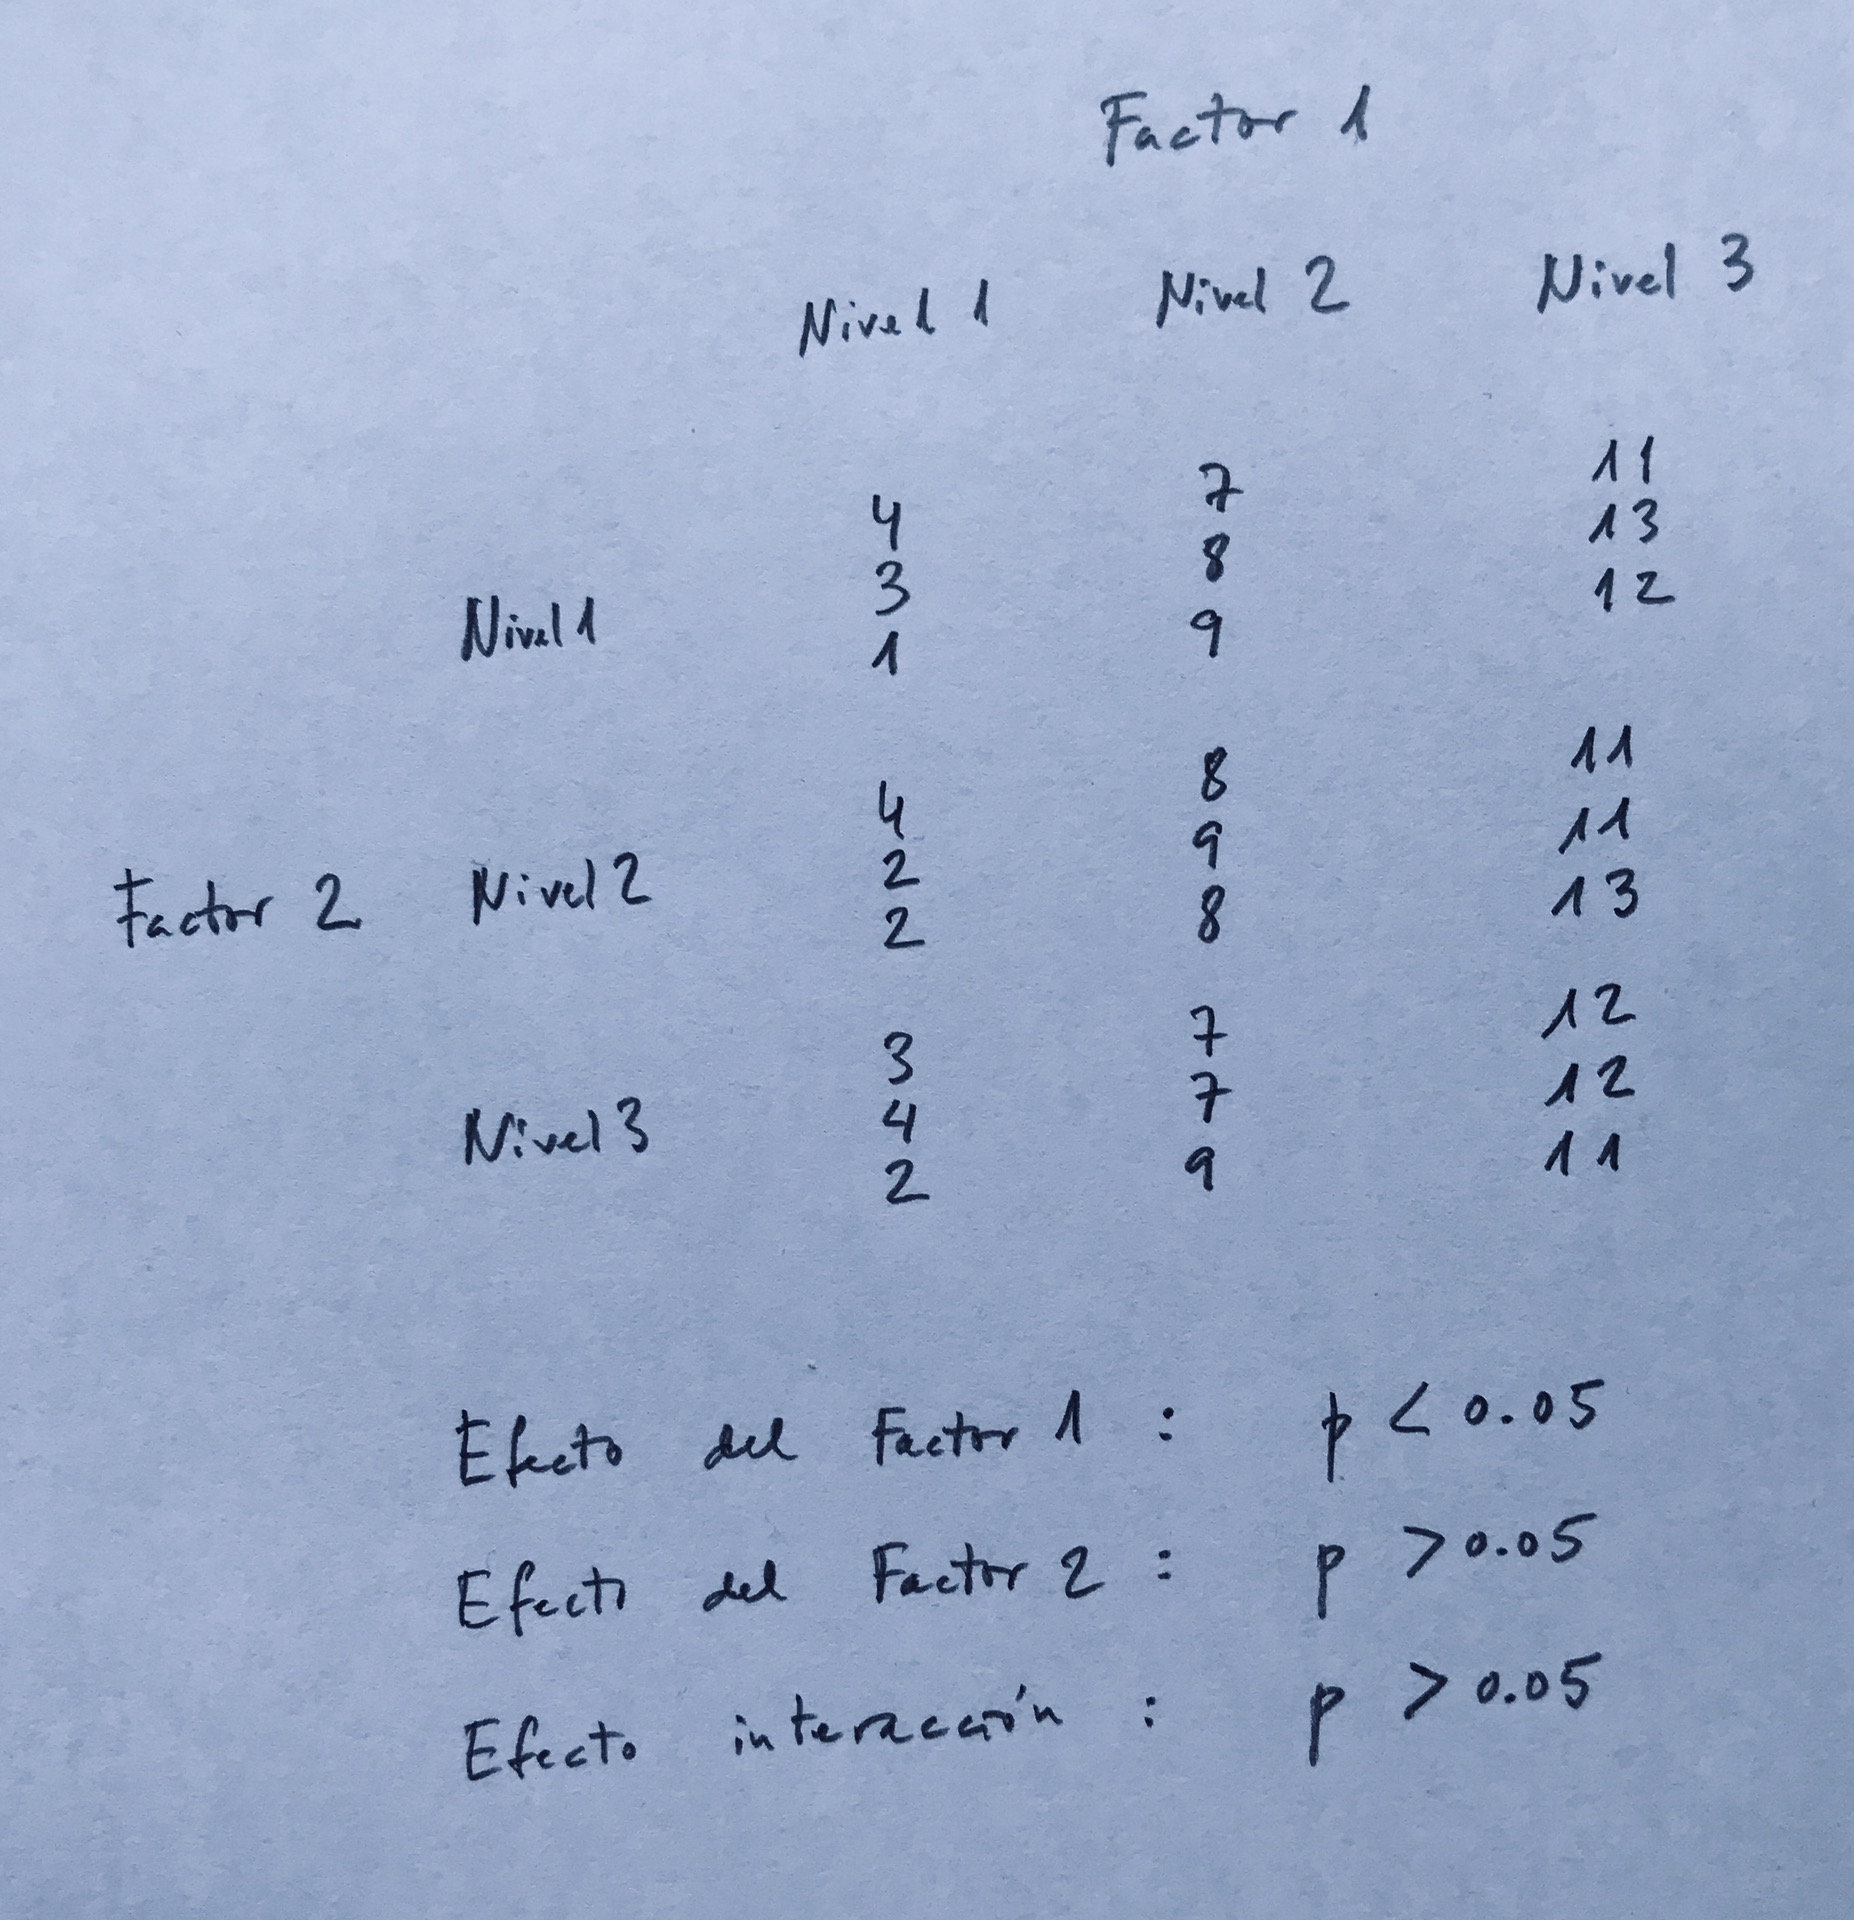 Factor 1
Nivel 1 Nivel 2 Nivel 3
4 7 11
3 8 13
Nivel 1 1 9 12
4 8 11
2 9 11
Factor 2 Nivel 2 2 8 13
3 7 12
Nivel 3 4 7 12
2 9 11
Efecto del Factor 1 : p < 0.05
Efecto del Factor 2 : p > 0.05
Efecto interacción : p > 0.05